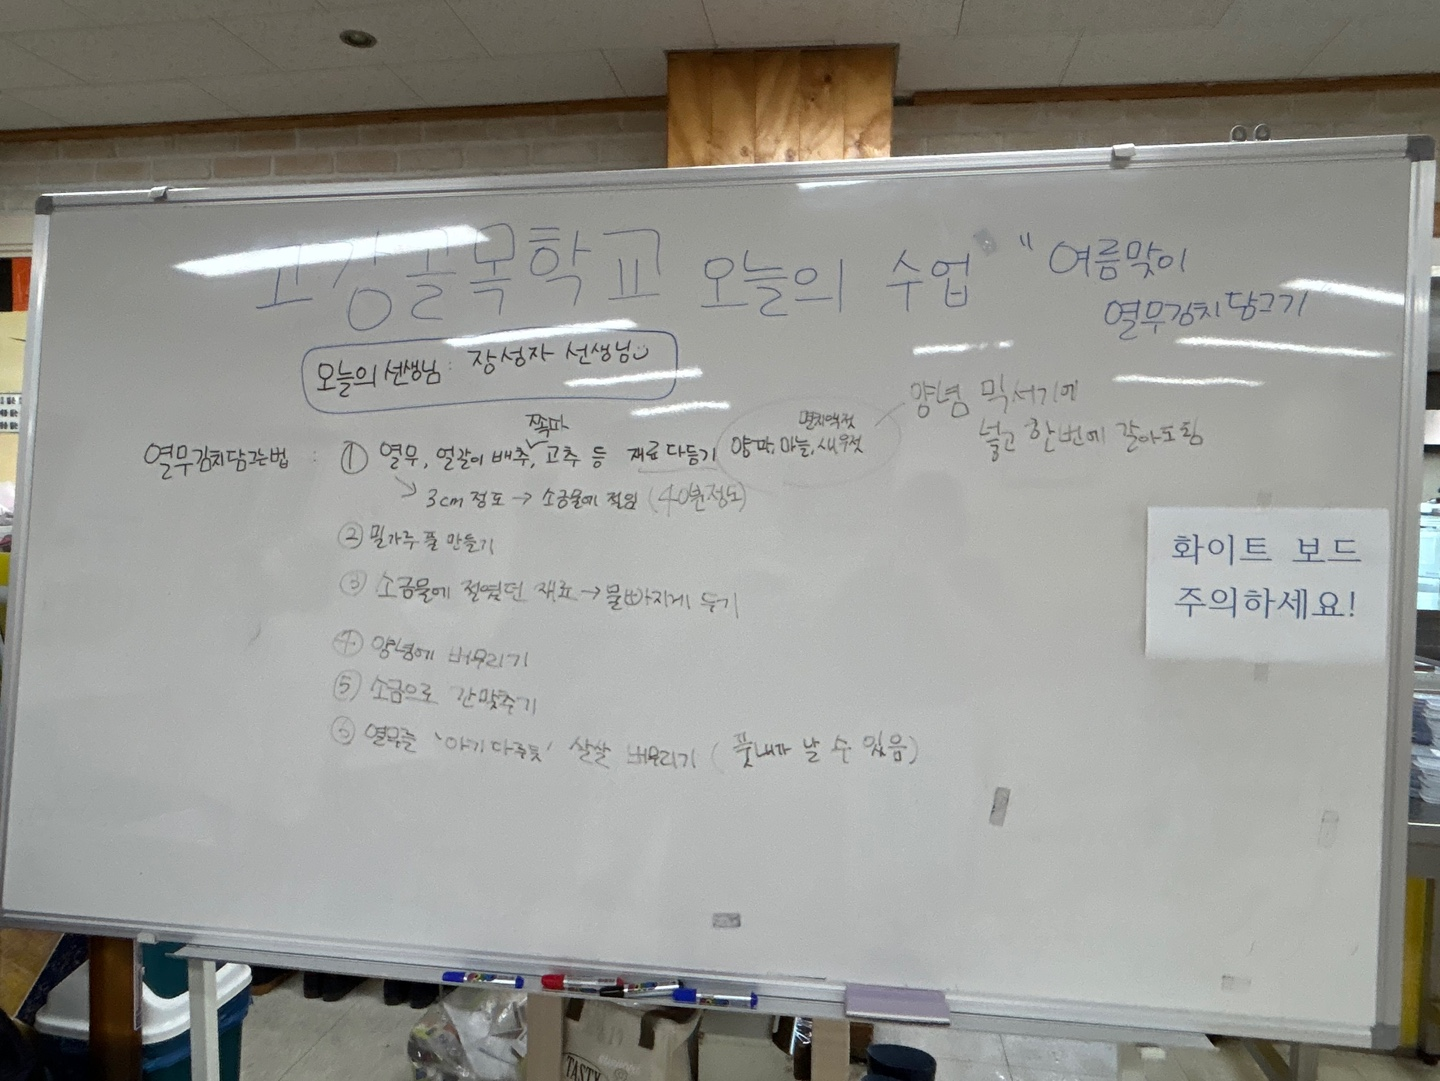 고강골목학교 오늘의 수업 " 여름맞이
열무김치담그기
오늘의 선생님 : 장성자 선생님
양념 믹서기에
넣고 한번에 갈아도됨
쪽파
멸치액젓
열무김치담그는법 : ① 열무, 얼갈이 배추, 고추 등 재료 다듬기 양파, 마늘, 새우젓
3cm 정도 → 소금물에 절임 (40분정도)
② 밀가루 풀 만들기
③ 소금물에 절였던 재료 → 물빠지게 두기
④ 양념에 버무리기
⑤ 소금으로 간맞추기
⑥ 열무를 '아기다루듯' 살살 버무리기 (풋내가 날 수 있음)
화이트 보드
주의하세요!
TASTY